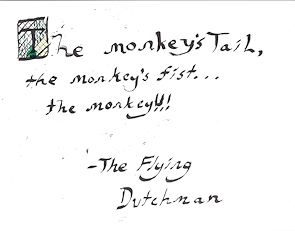 The monkey's Tail,
the monkey's fist...
the monkey!!!
-The Flying
Dutchman